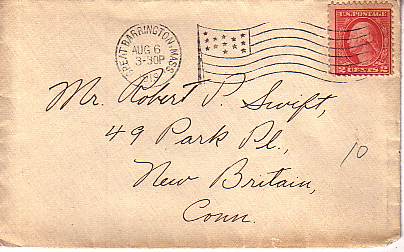 GREAT BARRINGTON, MASS.
AUG 6
3-30P
U.S. POSTAGE
2 CENTS 2
Mr. Robert P. Swift,
49 Park Pl.,
New Britain,
Conn.
10